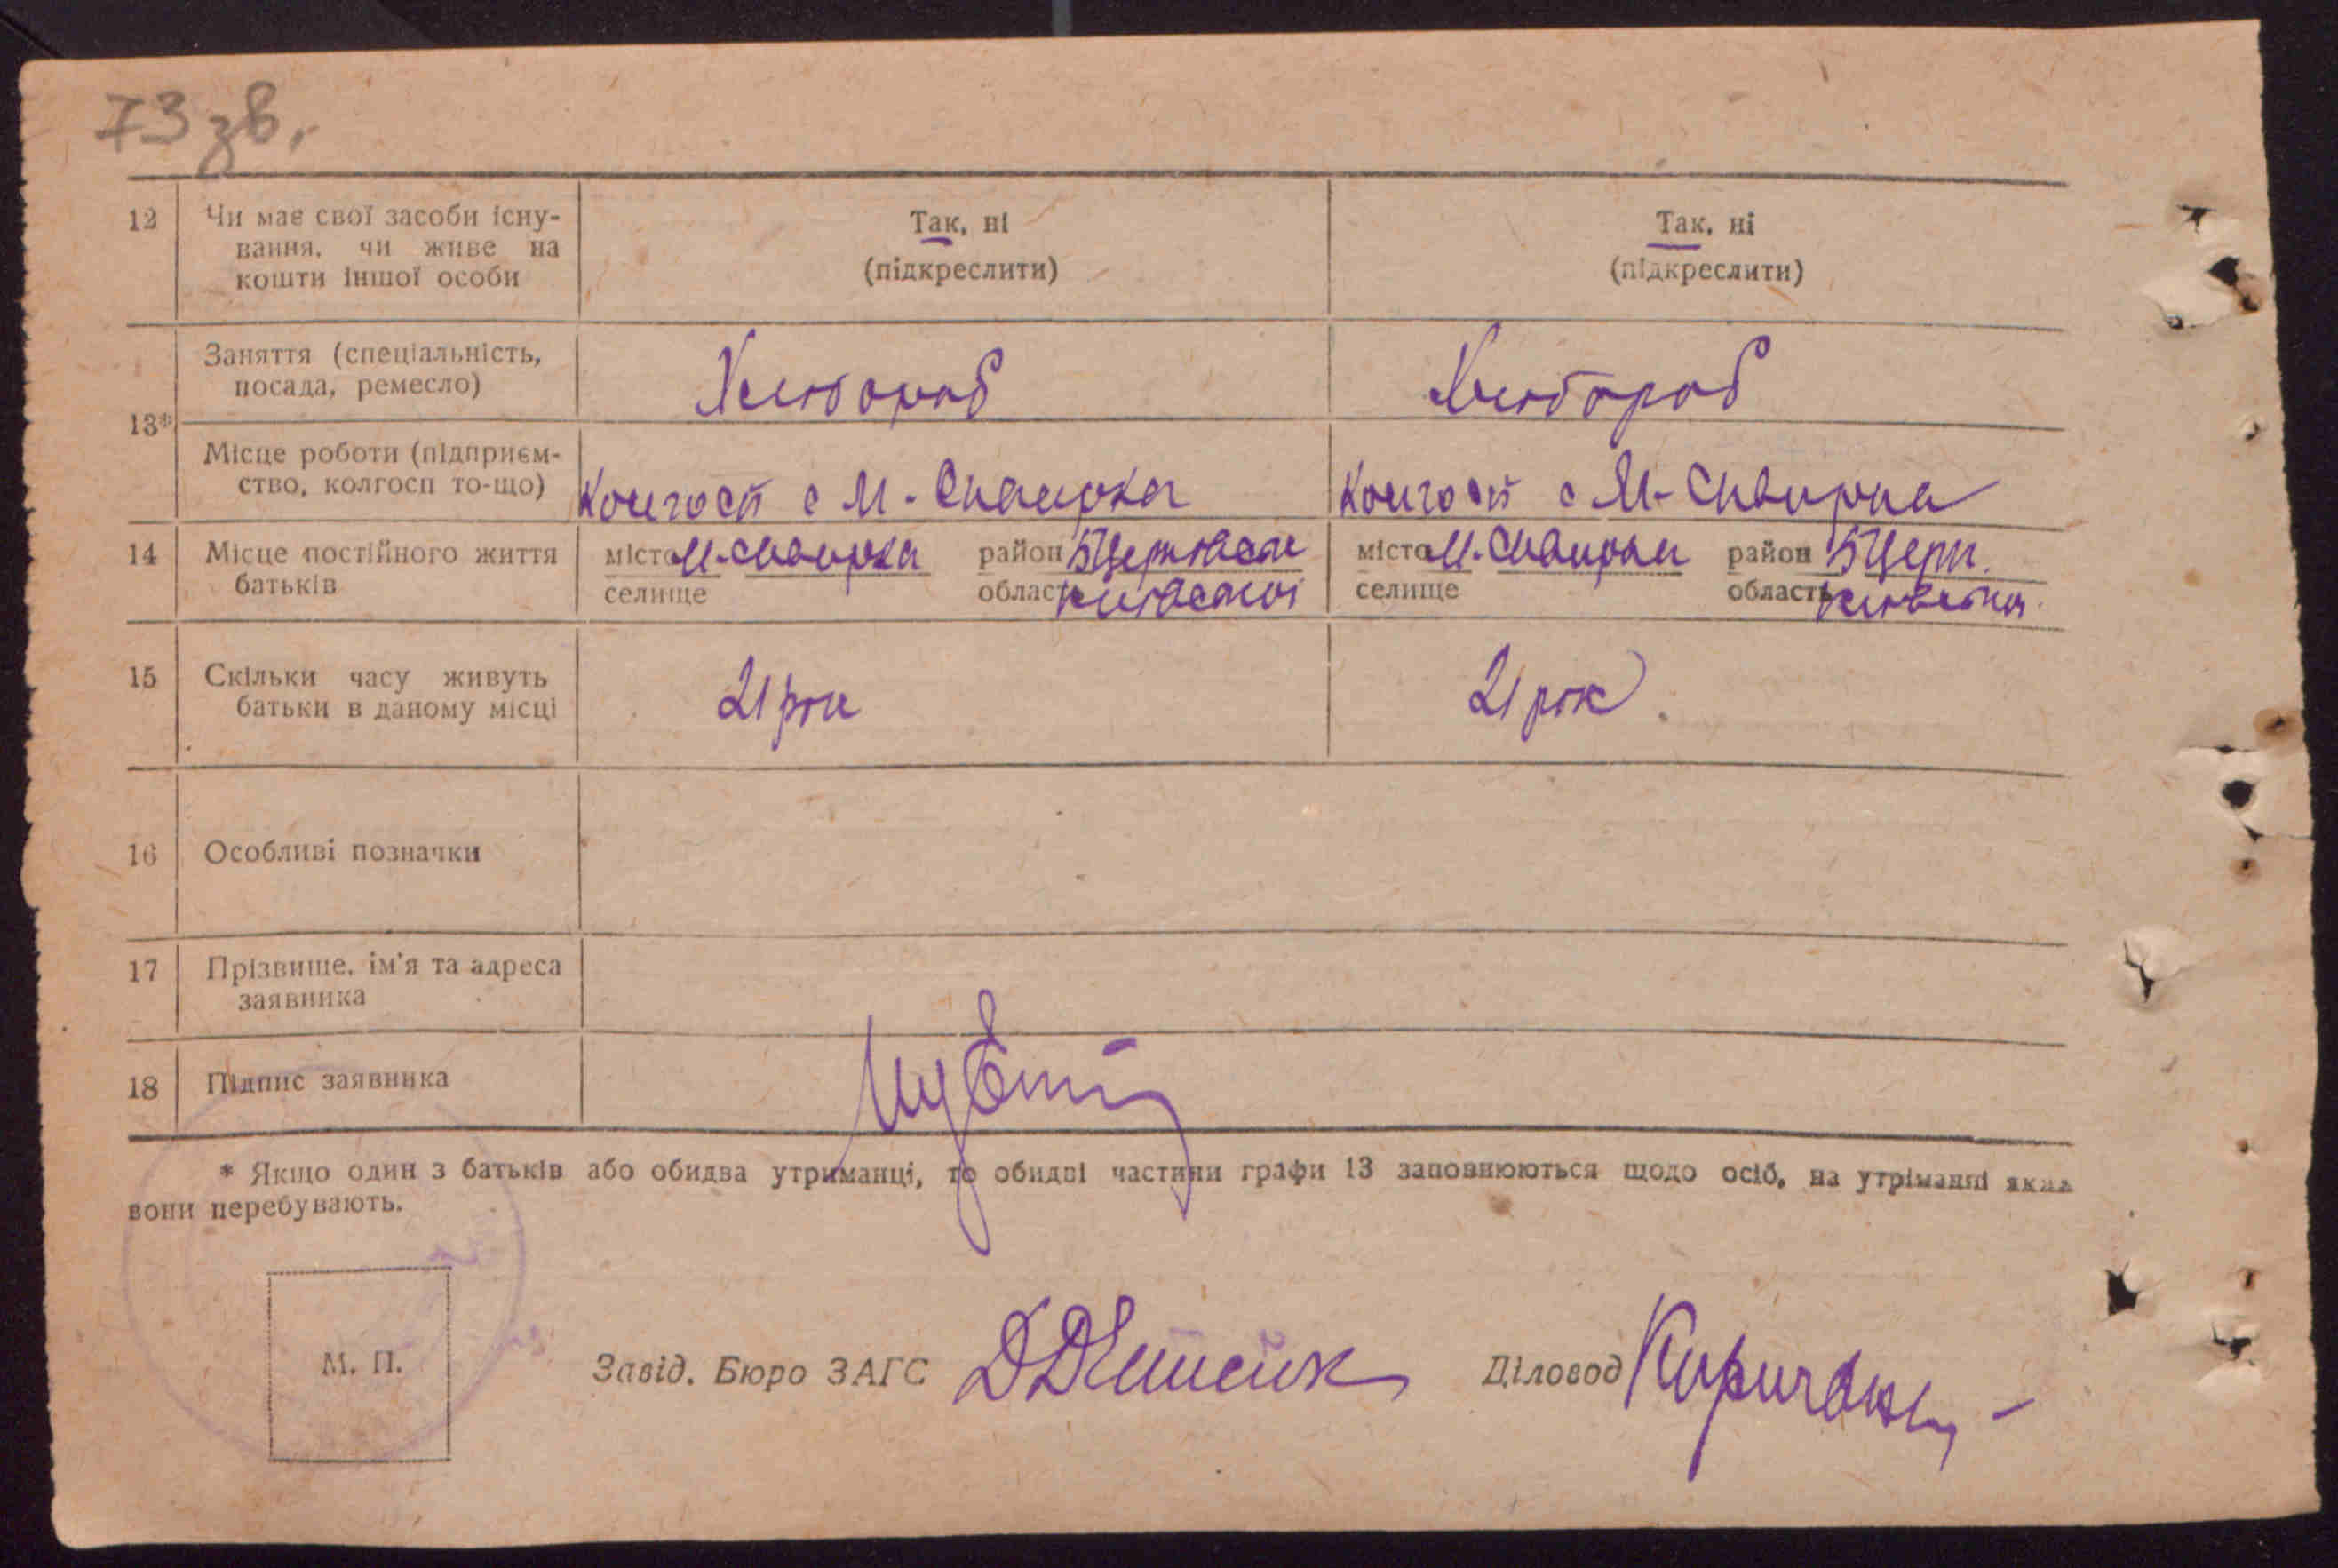 73 зв.
12 Чи має свої засоби існу-
вання, чи живе на
кошти іншої особи
Так, ні
(підкреслити)
Так, ні
(підкреслити)
13*
Заняття (спеціальність,
посада, ремесло)
Хлібороб
Хлібороб
Місце роботи (підприєм-
ство, колгосп то-що)
Колгосп с М-Сквирка
Колгосп с М-Сквирка
14 Місце постійного життя
батьків
місто М-Сквирка район БЦерківськ
селище область Київської
місто М-Сквирка район БЦерк.
селище область Київськ.
15 Скільки часу живуть
батьки в даному місці
21 рік
21 рік
16 Особливі позначки
17 Прізвище, ім'я та адреса
заявника
18 Підпис заявника
* Якщо один з батьків або обидва утриманці, то обидві частини графи 13 заповнюються щодо осіб, на утріманні яких
вони перебувають.
М. П.
Завід. Бюро ЗАГС
Діловод